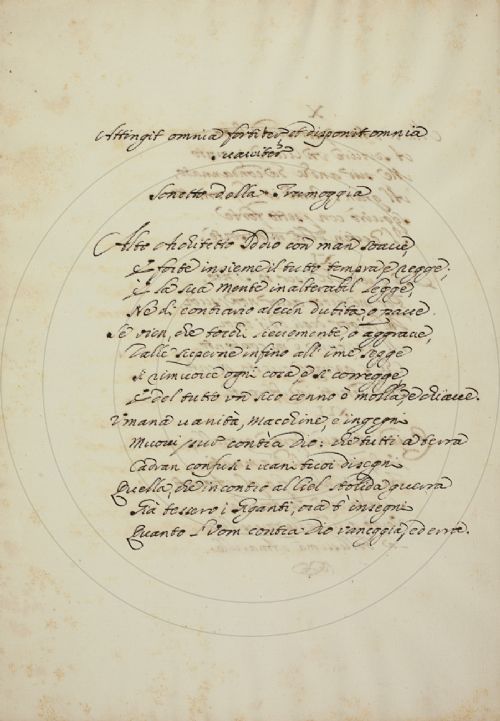 Attingit omnia fortiter, et disponit omnia
suaviter
Sonetto della Tramoggia
Alto Architetto Iddio con man soave
E forte insieme il tutto tempra e regge;
E la sua mente inalterabil legge,
Ne di contrario alcun dubita, o pave.
Se vien, che tardi, o aggrave,
Dalle superne infino all' ime segge
Si rimuove ogni cosa, e si corregge
E del tutto un suo cenno è molla, e chiave.
Umana vanità, macchine, e ingegni
Muovi pur contra Dio: che tutti a terra
Cadran confusi i vani tuoi disegni
Quella, che incontro al Ciel stolida guerra
Già tessero i Giganti, ora t' insegni
Quanto l' Uom contra Dio vaneggia, ed erra.